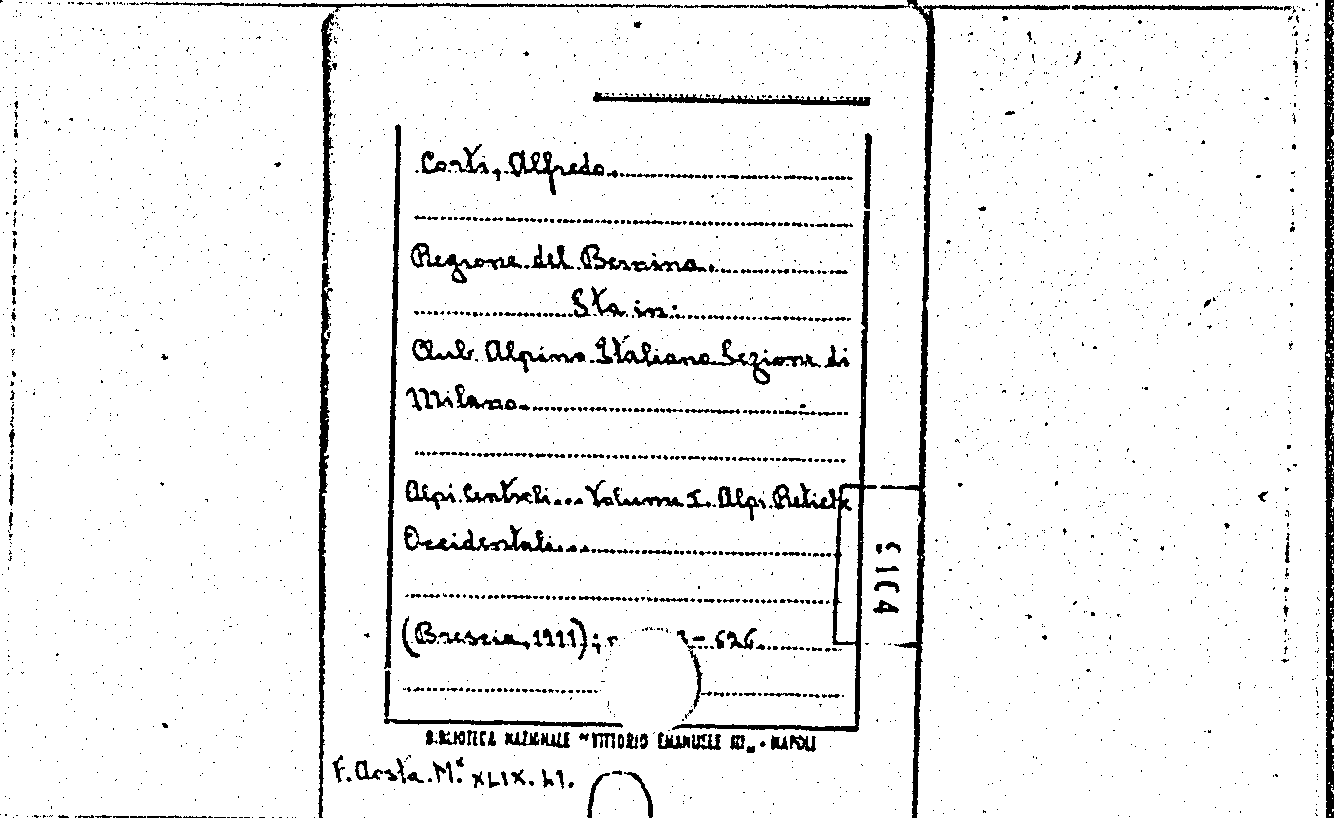 Corti, Alfredo.
Regione del Bernina.
Sta in:
Club Alpino Italiano Sezione di
Milano.
Alpi Centrali... Volume I. Alpi Retiche
Occidentali...
(Brescia, 1911); 626.
BIBLIOTECA NAZIONALE "VITTORIO EMANUELE III" - NAPOLI
F. Aosta. M.ª XLIX. 41.